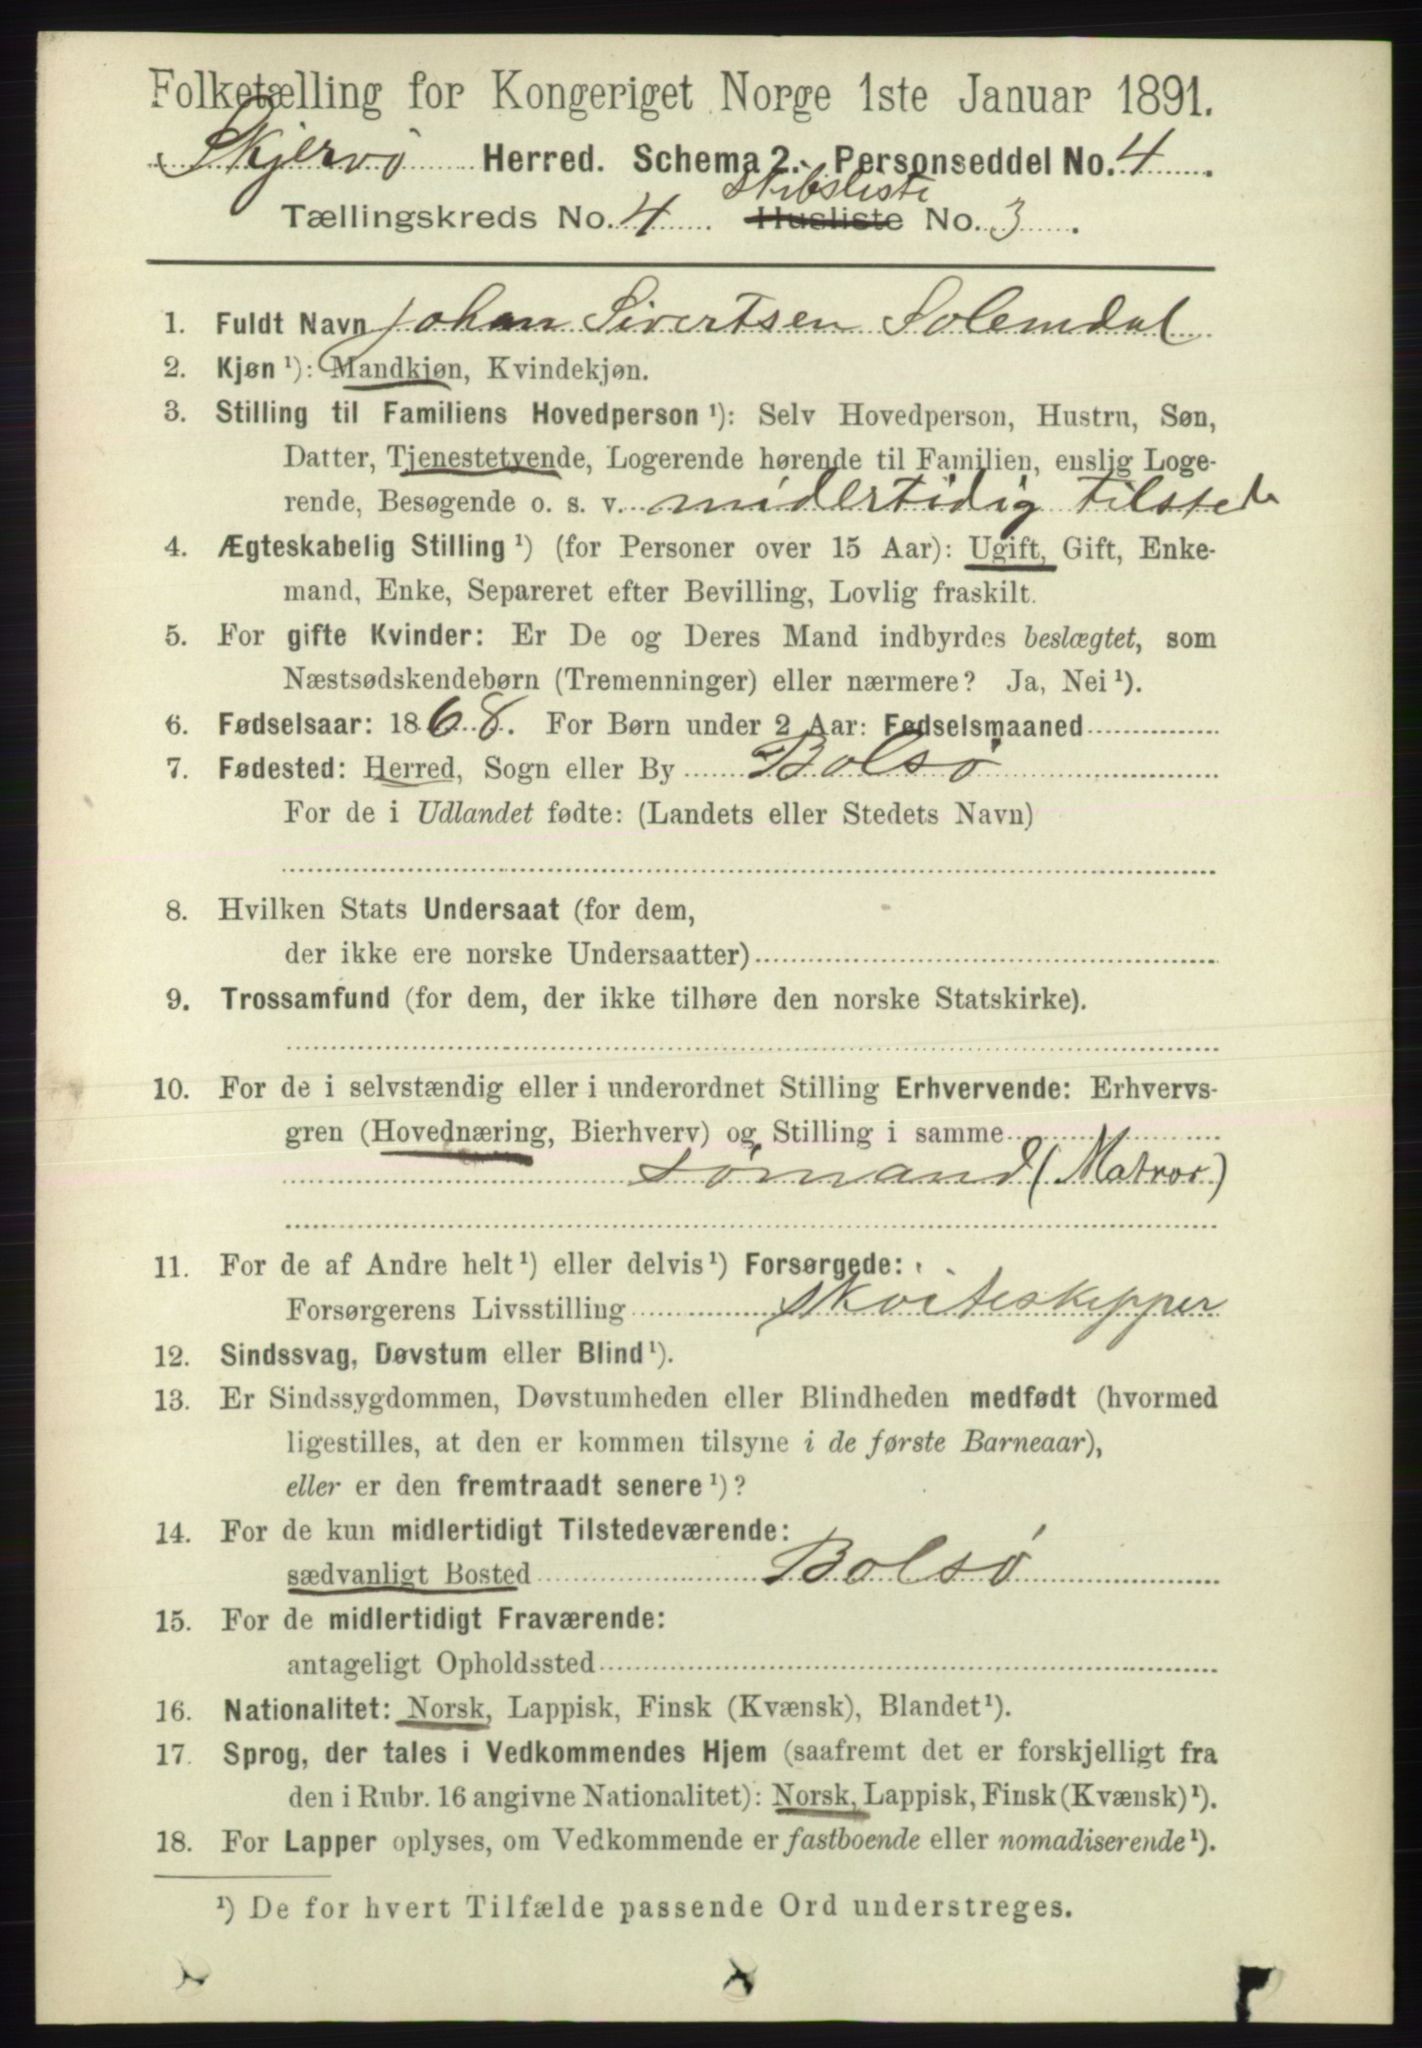 Folketælling for Kongeriget Norge 1ste Januar 1891.
Skjervø Herred. Schema 2. Personseddel No. 4.
Skibsliste
Tællingskreds No. 4 Husliste No. 3.
1. Fuldt Navn Johan Sivertsen Solemdal
2. Kjøn ¹): Mandkjøn, Kvindekjøn.
3. Stilling til Familiens Hovedperson ¹): Selv Hovedperson, Hustru, Søn,
Datter, Tjenestetyende, Logerende hørende til Familien, enslig Loge-
rende, Besøgende o. s. v. midertidig tilstede
4. Ægteskabelig Stilling ¹) (for Personer over 15 Aar): Ugift, Gift, Enke-
mand, Enke, Separeret efter Bevilling, Lovlig fraskilt.
5. For gifte Kvinder: Er De og Deres Mand indbyrdes beslægtet, som
Næstsødskendebørn (Tremenninger) eller nærmere? Ja, Nei ¹).
6. Fødselsaar: 1868. For Børn under 2 Aar: Fødselsmaaned
7. Fødested: Herred, Sogn eller By Bolsø
For de i Udlandet fødte: (Landets eller Stedets Navn)
8. Hvilken Stats Undersaat (for dem,
der ikke ere norske Undersaatter)
9. Trossamfund (for dem, der ikke tilhøre den norske Statskirke).
10. For de i selvstændig eller i underordnet Stilling Erhvervende: Erhvervs-
gren (Hovednæring, Bierhverv) og Stilling i samme
sømand (Matros)
11. For de af Andre helt ¹) eller delvis ¹) Forsørgede:
Forsørgerens Livsstilling skøiteskipper
12. Sindssvag, Døvstum eller Blind ¹).
13. Er Sindssygdommen, Døvstumheden eller Blindheden medfødt (hvormed
ligestilles, at den er kommen tilsyne i de første Barneaar),
eller er den fremtraadt senere ¹)?
14. For de kun midlertidigt Tilstedeværende:
sædvanligt Bosted Bolsø
15. For de midlertidigt Fraværende:
antageligt Opholdssted
16. Nationalitet: Norsk, Lappisk, Finsk (Kvænsk), Blandet ¹).
17. Sprog, der tales i Vedkommendes Hjem (saafremt det er forskjelligt fra
den i Rubr. 16 angivne Nationalitet): Norsk, Lappisk, Finsk (Kvænsk) ¹).
18. For Lapper oplyses, om Vedkommende er fastboende eller nomadiserende ¹).
¹) De for hvert Tilfælde passende Ord understreges.